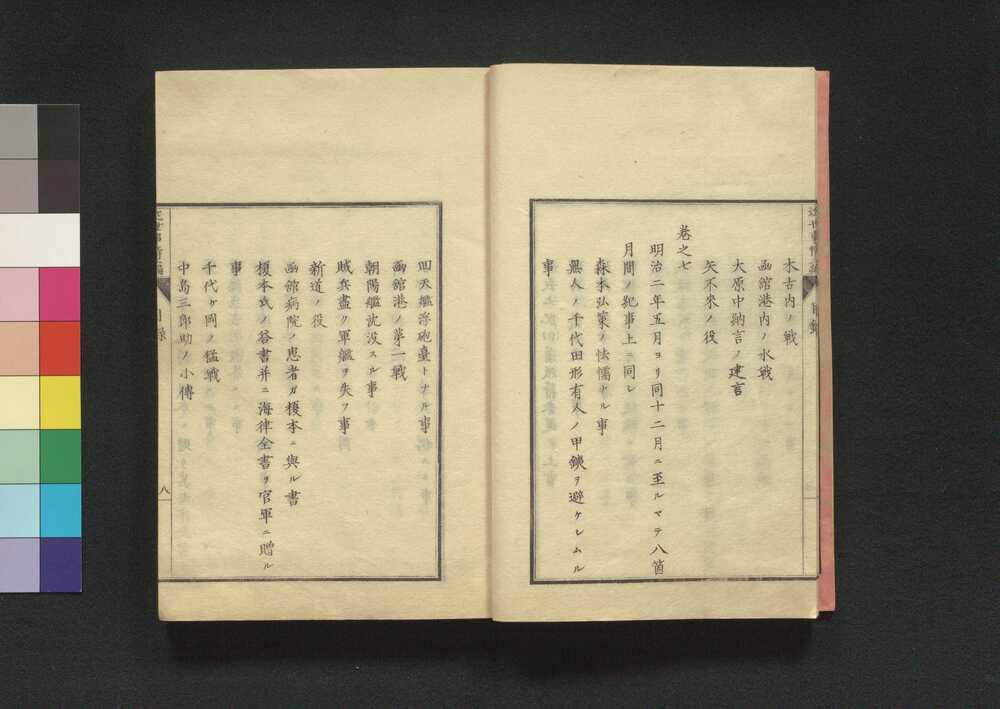 木古内ノ戰
函館港内ノ水戰
大原中納言ノ建言
矢不來ノ役
卷之七
明治二年五月ヨリ同十二月ニ至ルマテ八箇
月間ノ犯事上ニ同シ
森本弘策ノ怯懦ナル事
無人ノ千代田形有人ノ甲鐵ヲ避ケレムル
事
目錄
四天艦浮砲臺トナル事
函館港ノ第一戰
朝陽艦沈没スル事
賊兵盡ク軍艦ヲ失フ事
新道ノ役
函館病院ノ患者ガ榎本ニ與ル書
榎本氏ノ答書并ニ海律全書ヲ官軍ニ贈ル
事
千代ケ岡ノ猛戰
中島三郎助ノ小傳
目錄
八